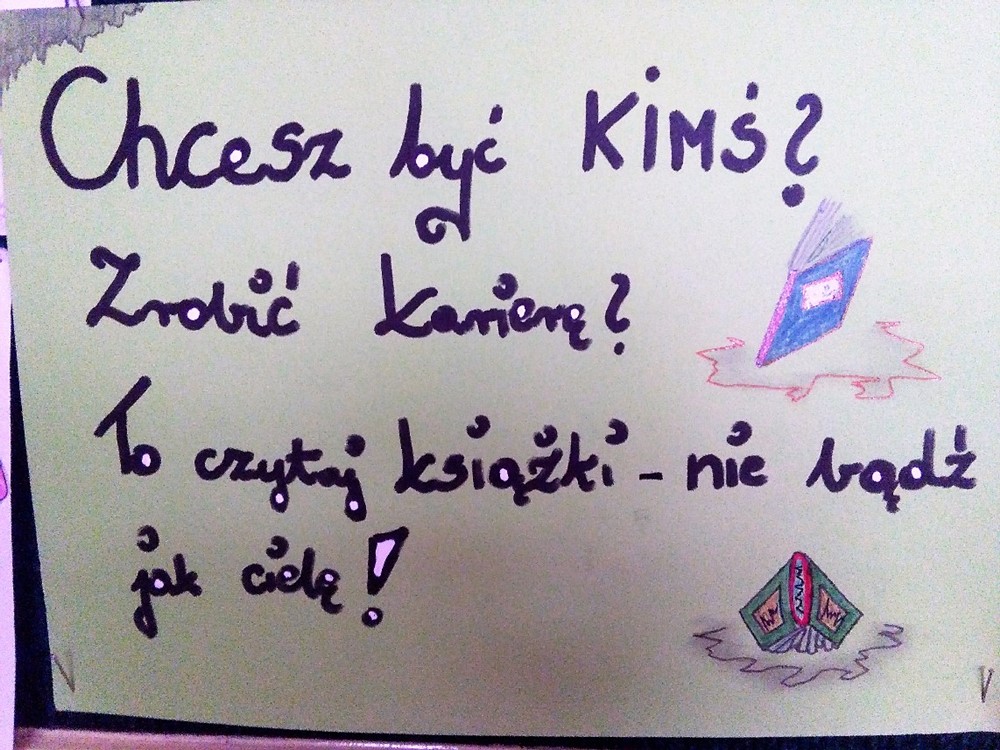 Chcesz być KIMŚ?
Zrobić karierę?
To czytaj książki - nie bądź
jak cielę!